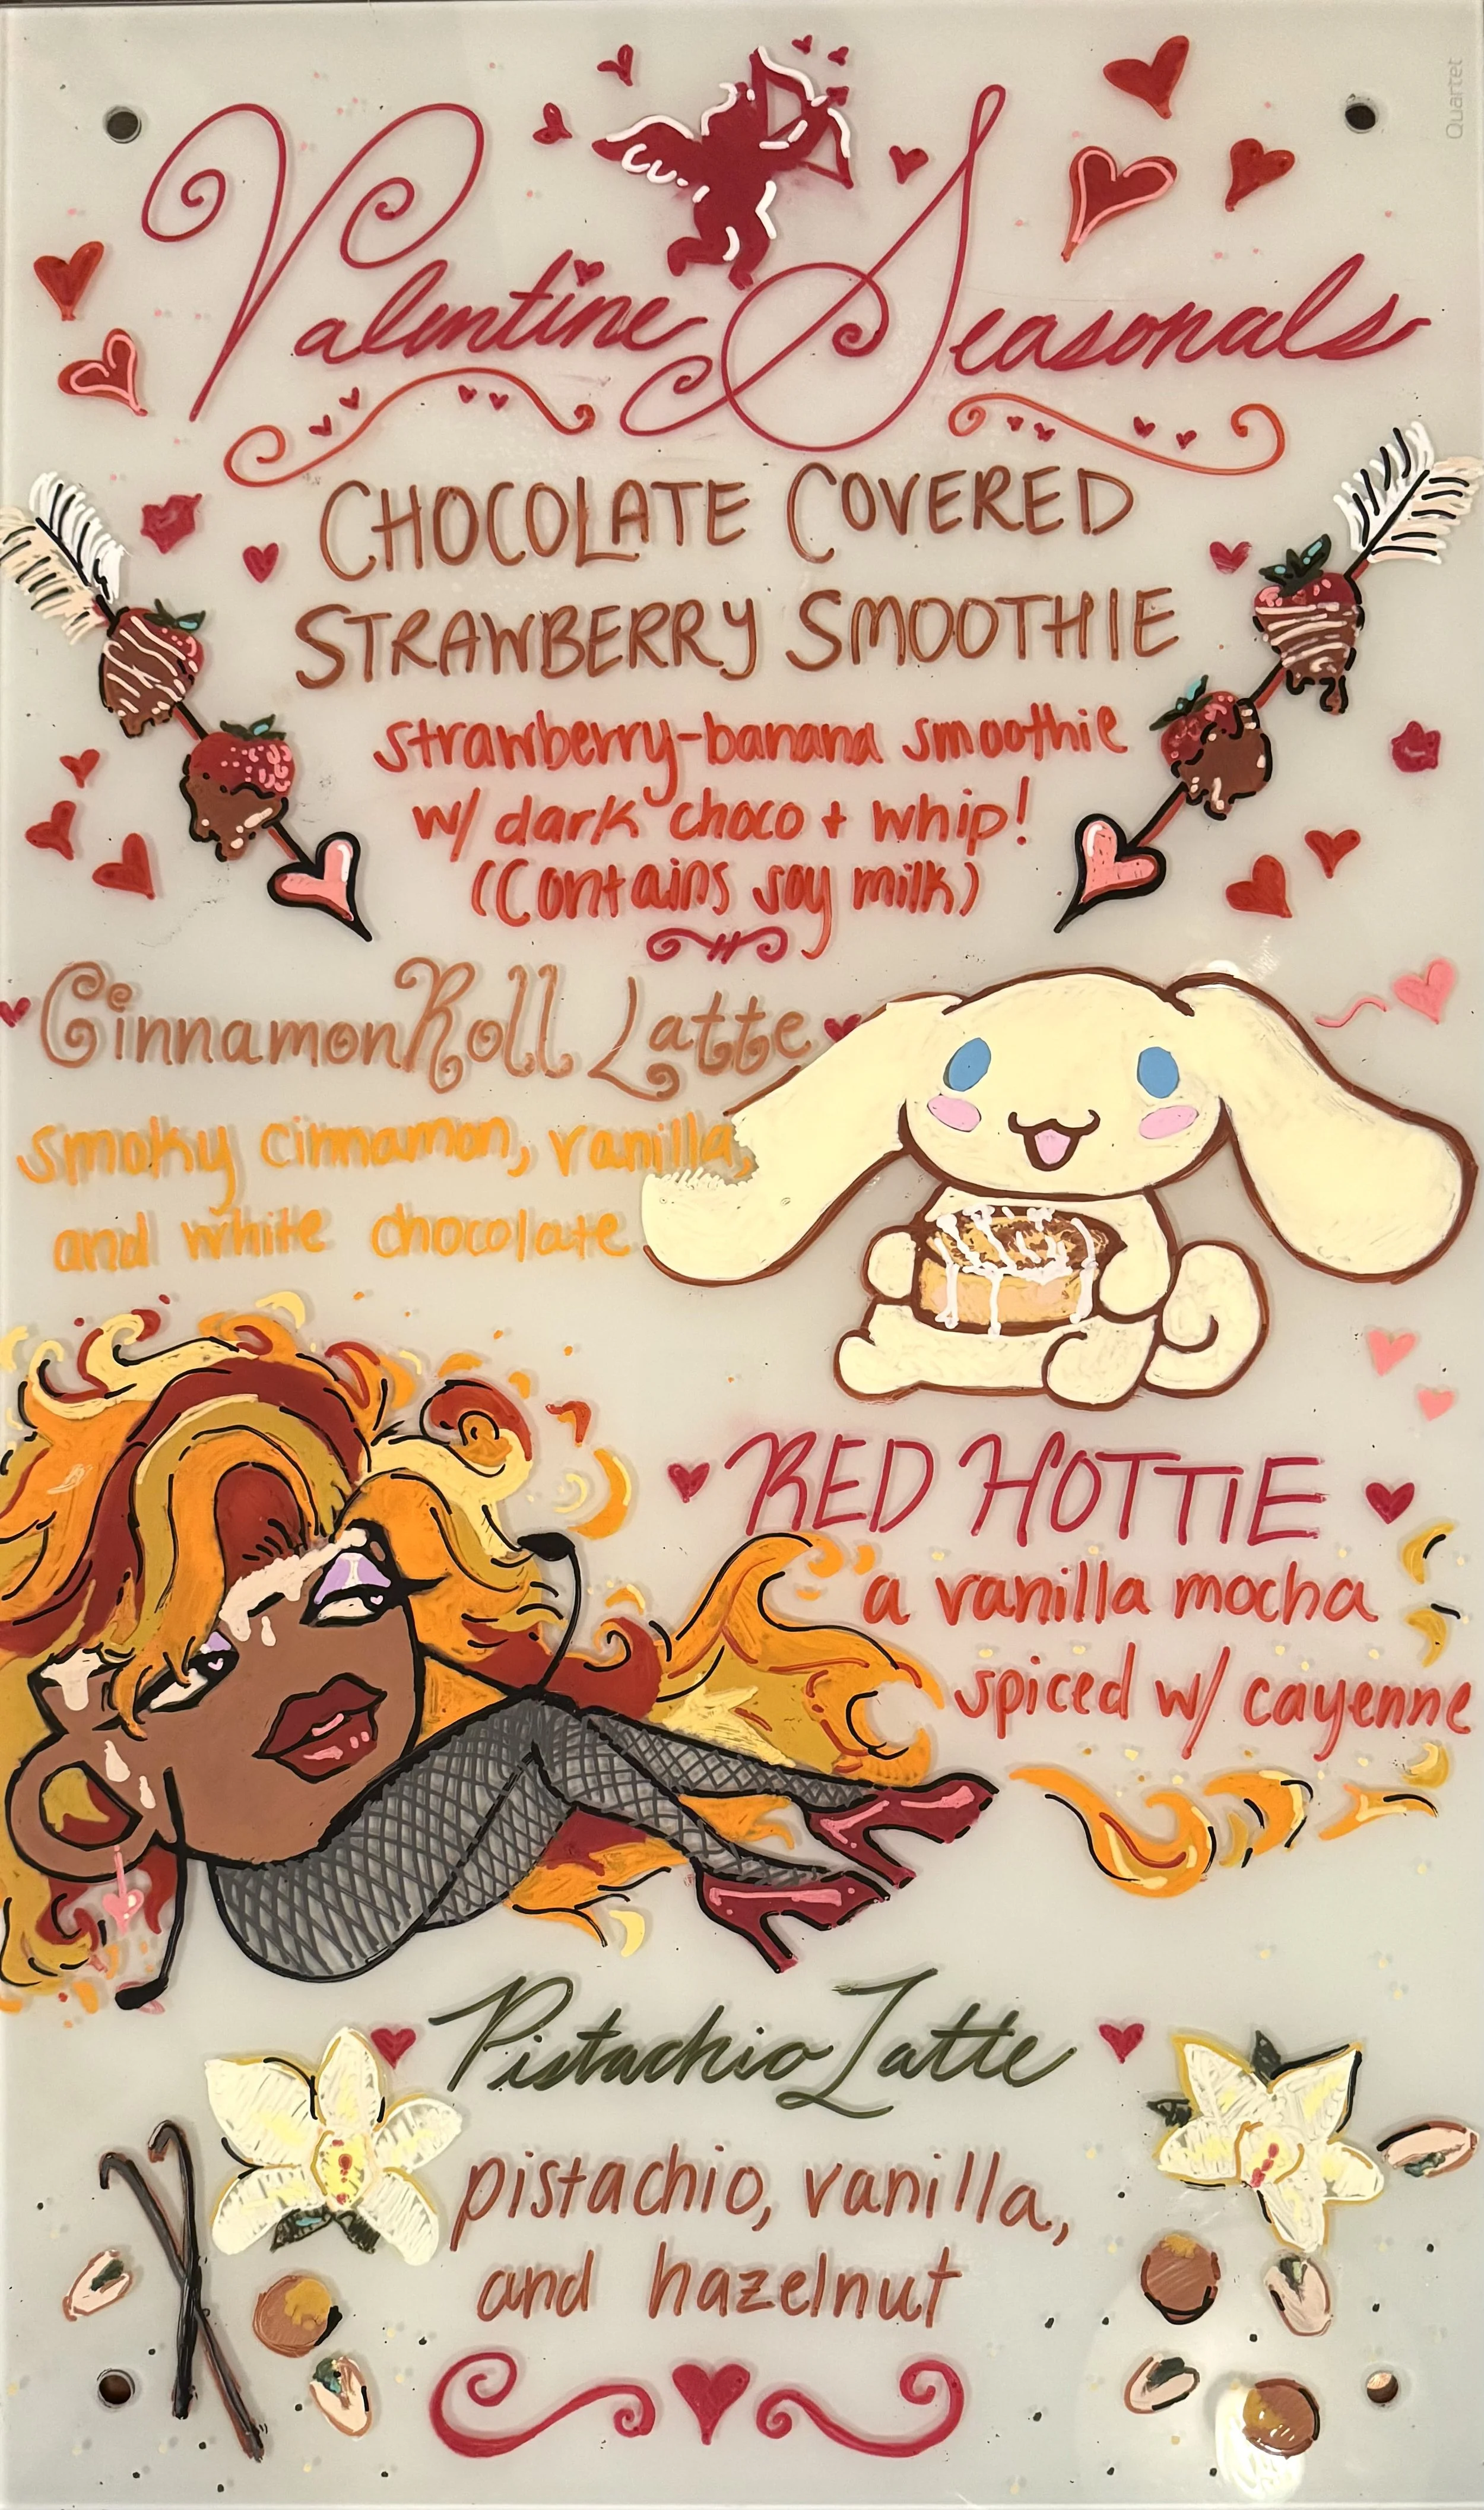 Quartet
Valentine Seasonals
CHOCOLATE COVERED
STRAWBERRY SMOOTHIE
strawberry-banana smoothie
w/ dark choco + whip!
(Contains soy milk)
CinnamonRoll Latte
smoky cinnamon, vanilla,
and white chocolate
RED HOTTIE
a vanilla mocha
spiced w/ cayenne
Pistachio Latte
pistachio, vanilla,
and hazelnut